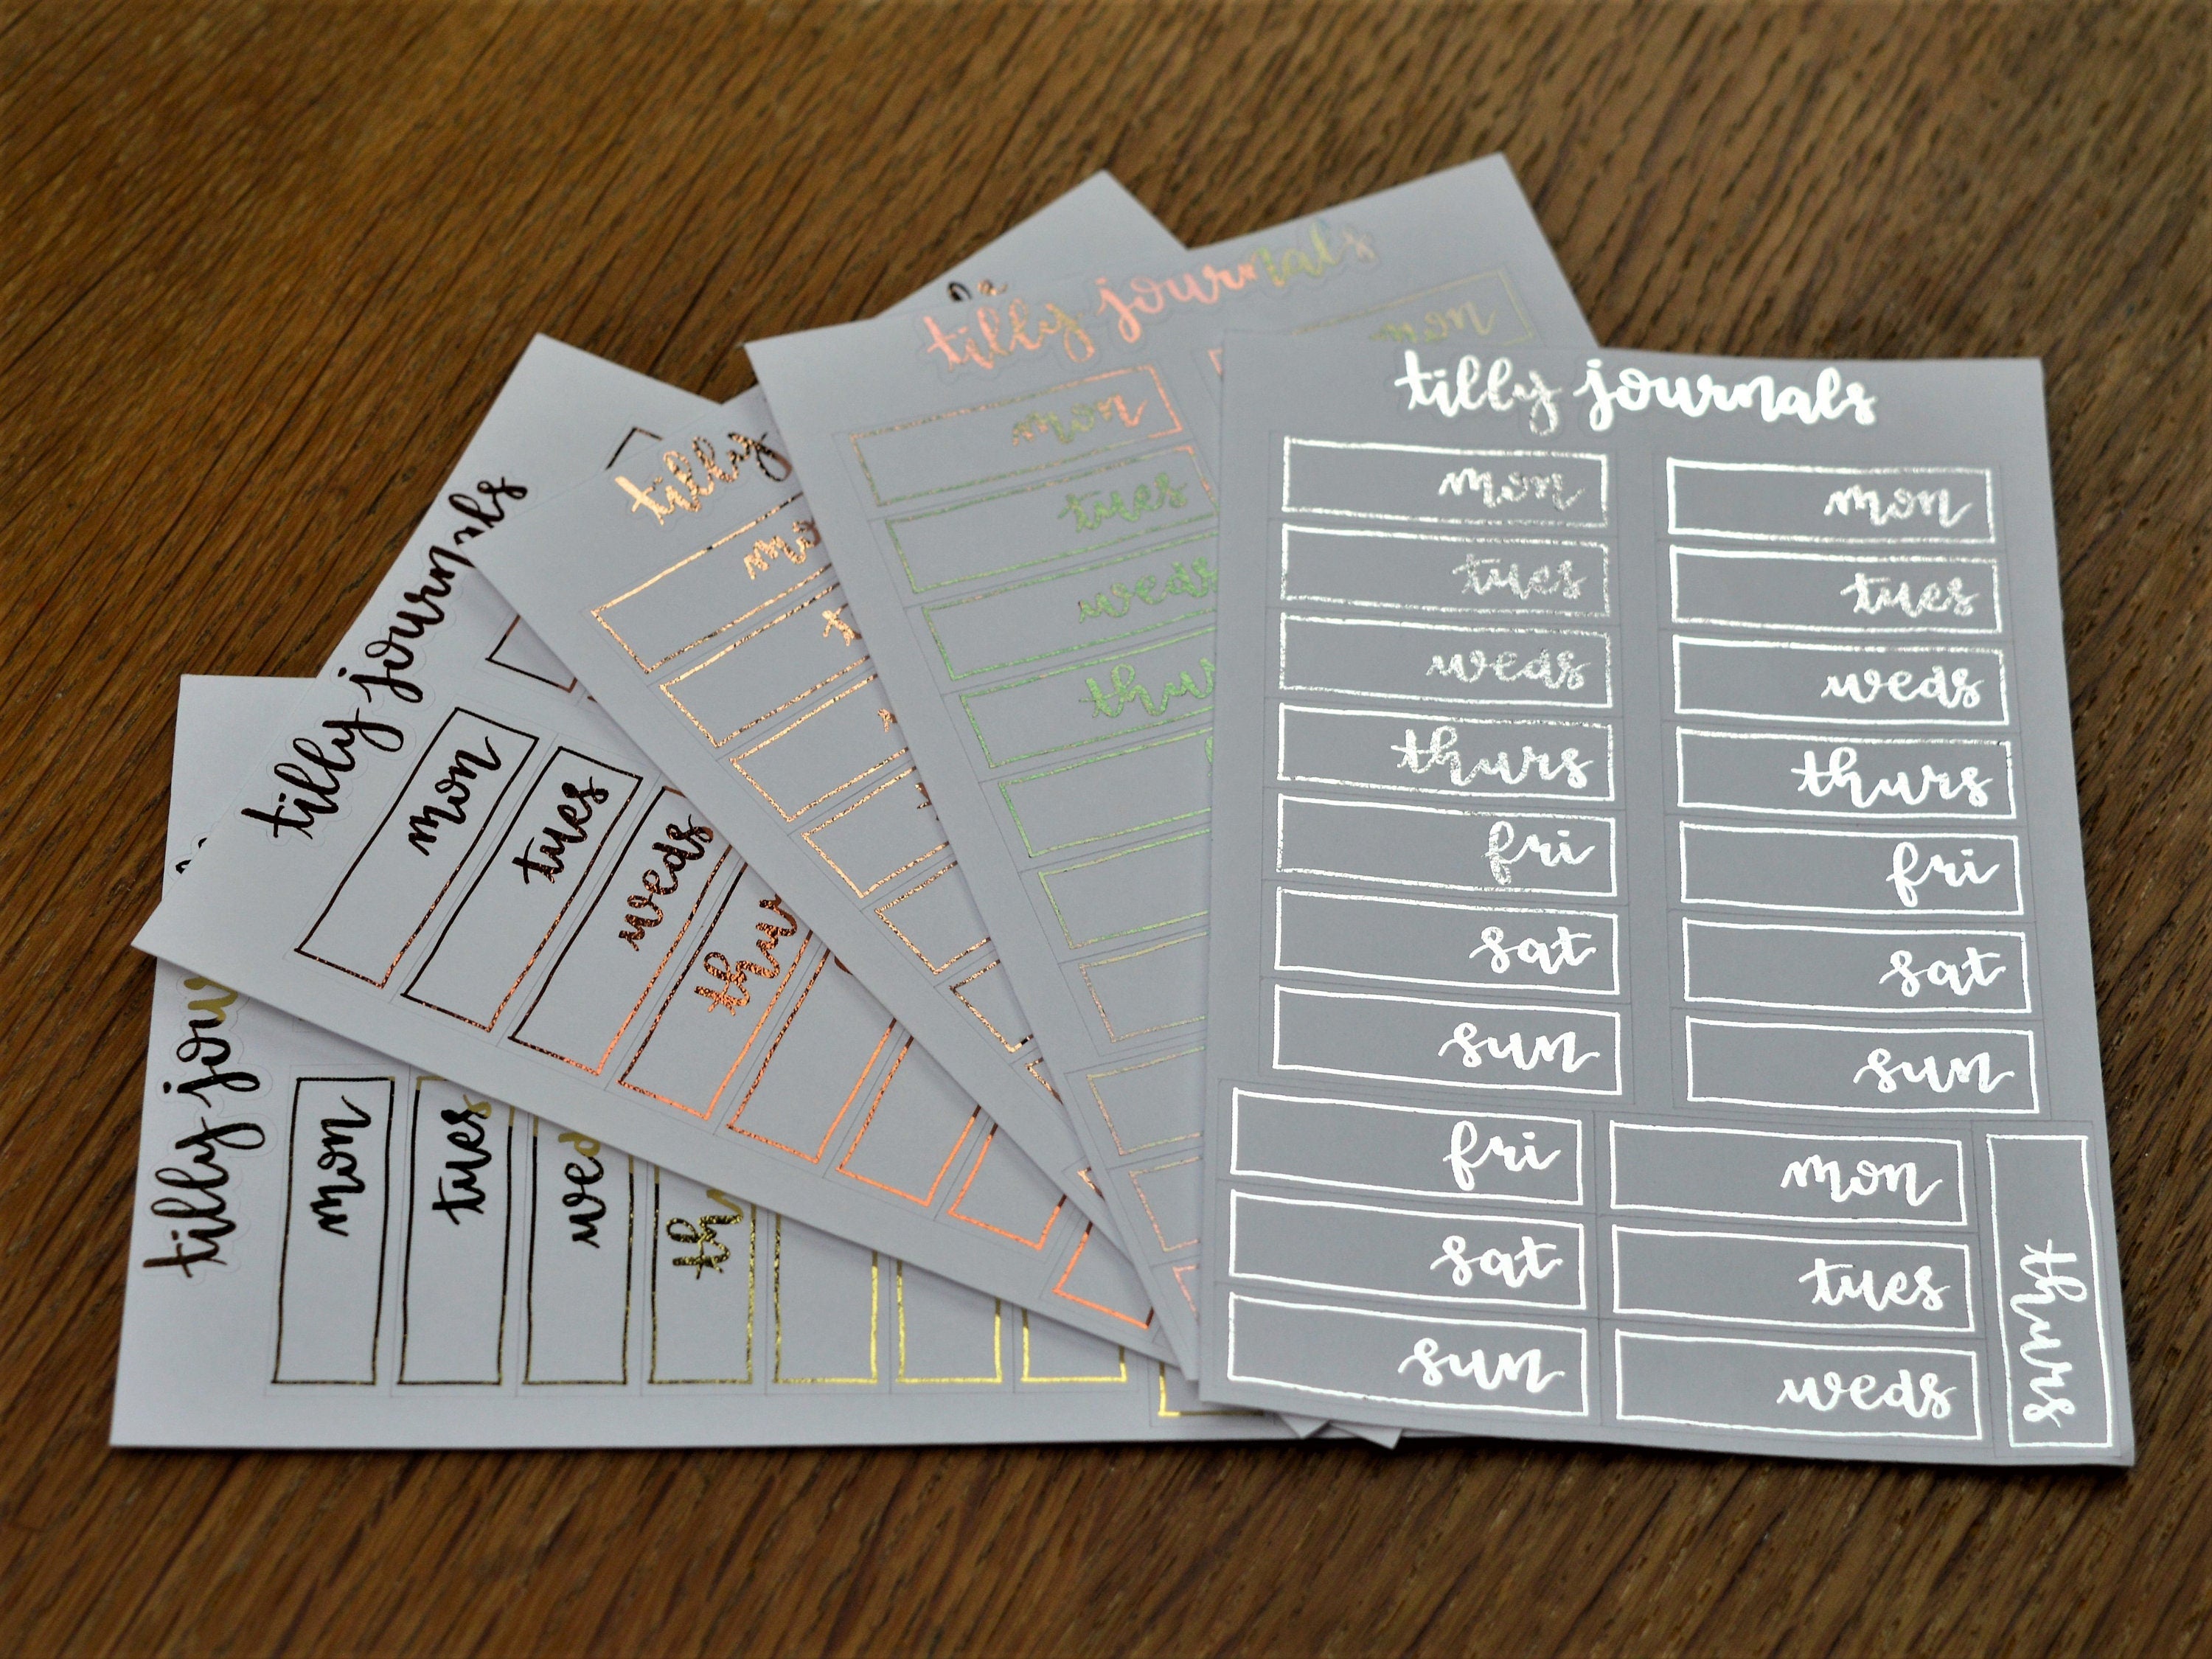 tilly journals
mon
tues
weds
thurs
fri
sat
sun
mon
tues
weds
thurs
fri
sat
sun
fri
sat
sun
mon
tues
weds
thurs
tilly journals
mon
tues
weds
thur
mon
tilly
tilly journals
mon
tues
weds
thur
tilly jou
mon
tues
wed
th